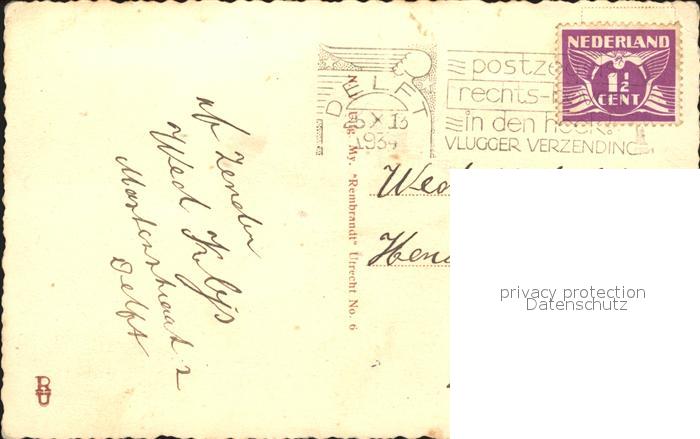 NEDERLAND
1½
CENT
DELFT
X 13
1934
postze
rechts-
in den hoek!
VLUGGER VERZENDING
My. "Rembrandt" Utrecht No. 6
afzender
Wed
Delft
Wed
Hen
privacy protection
Datenschutz